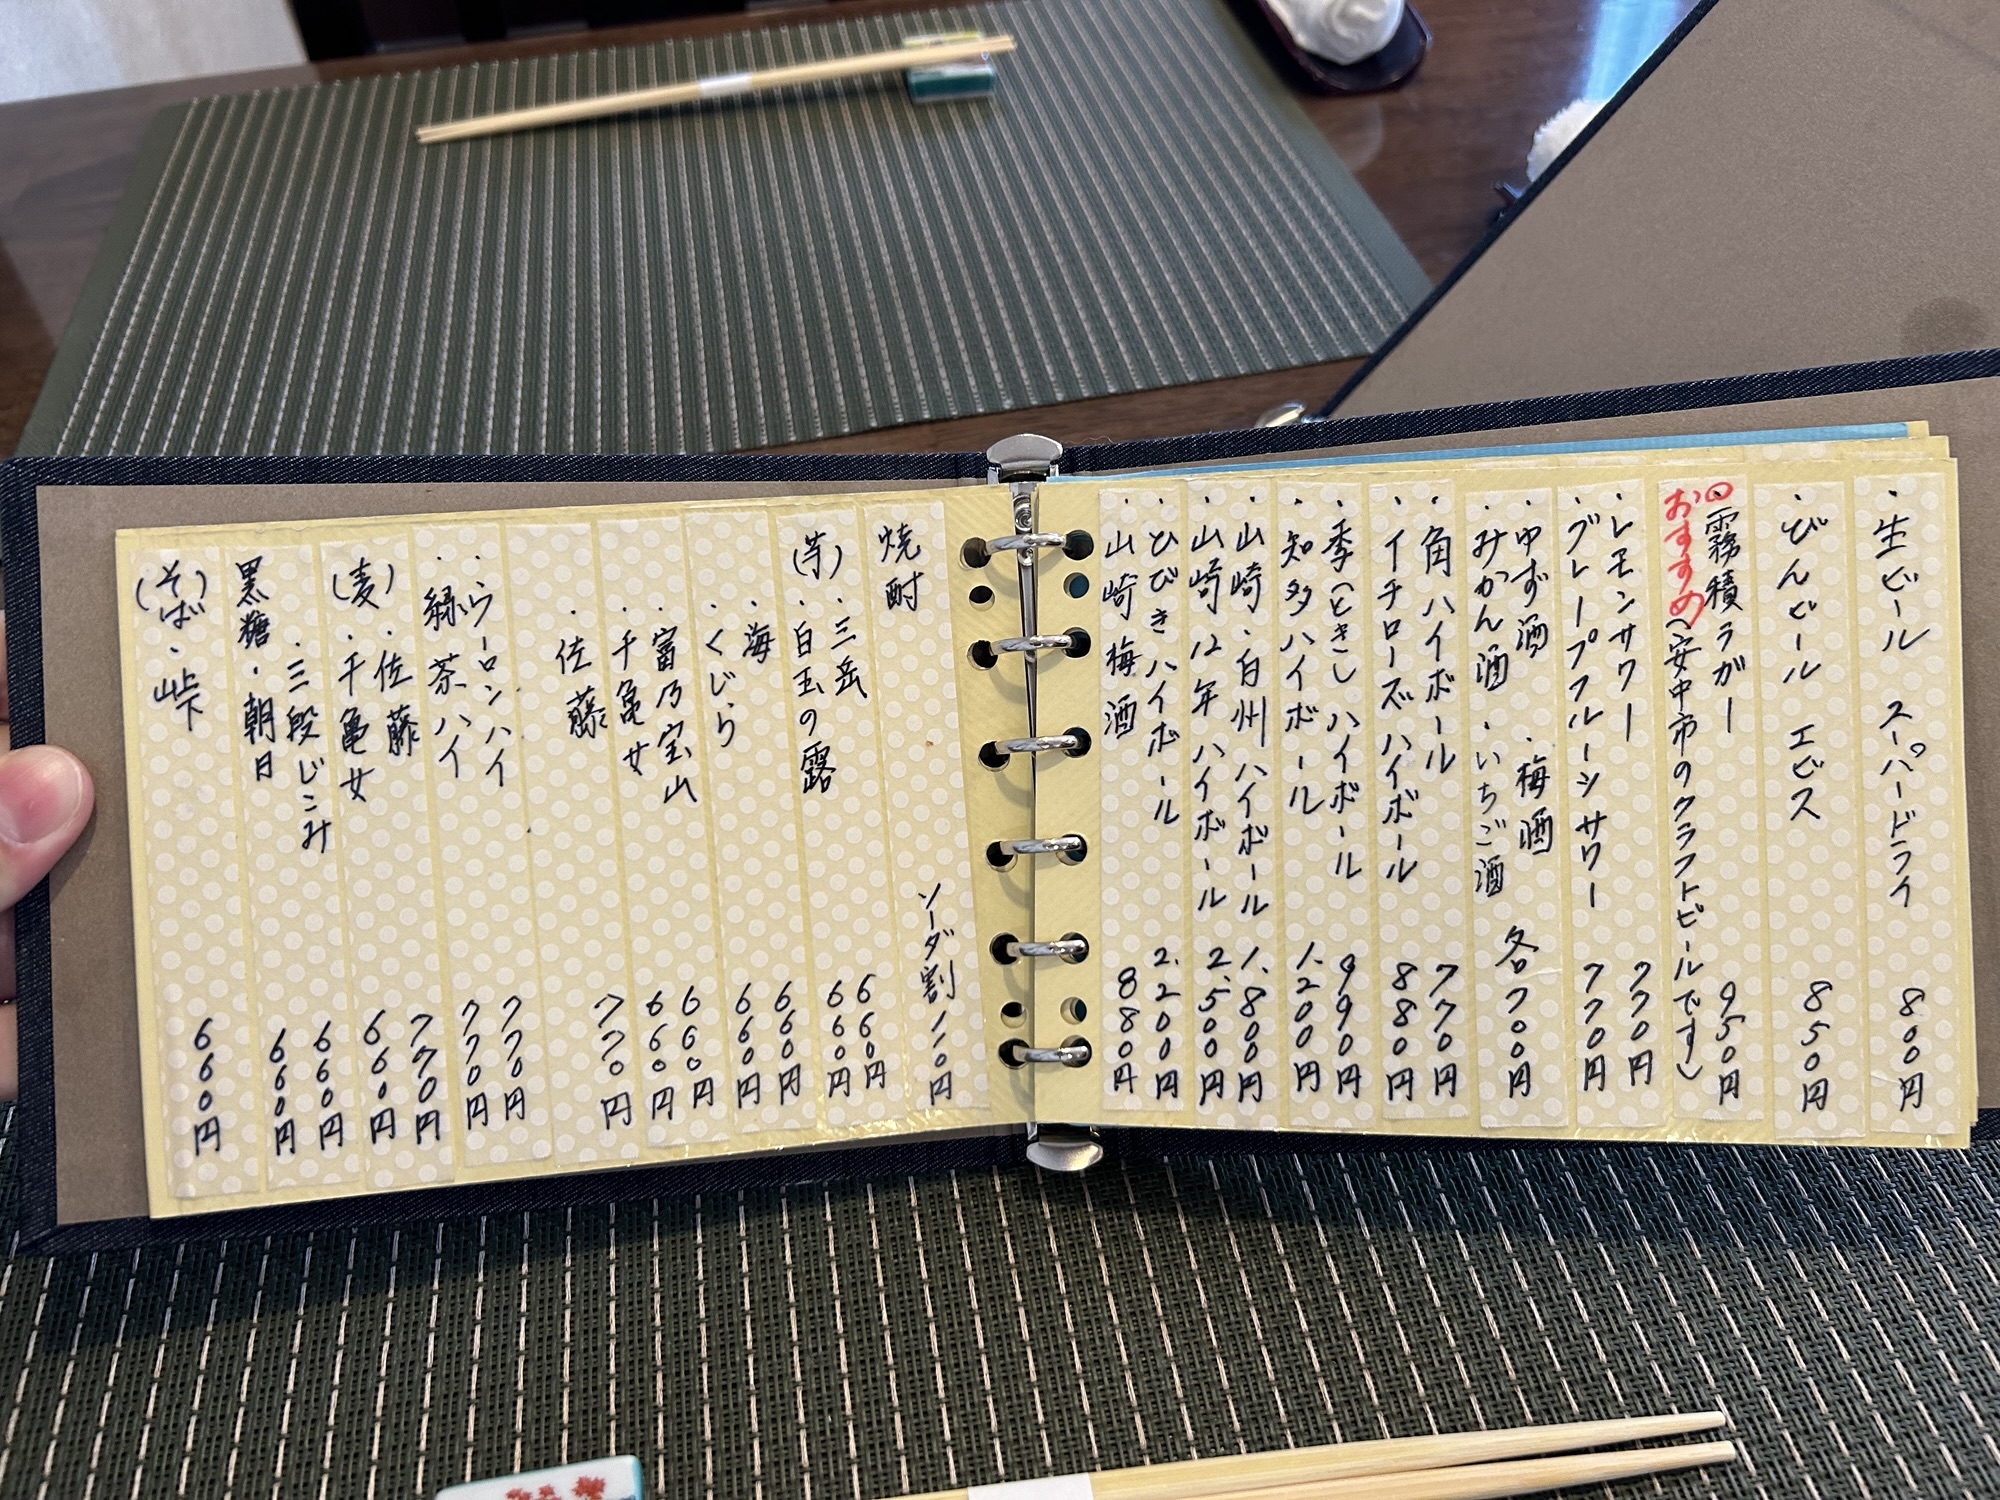 ・生ビール スーパードライ 800円
・びんビール エビス 850円
・霧積ラガー 950円
おすすめ(安中市のクラフトビールです)
・レモンサワー 770円
・グレープフルーツサワー 770円
・ゆず酒 ・梅酒
・みかん酒 ・いちご酒 各700円
・角ハイボール 770円
・イチローズハイボール 880円
・季(とき)ハイボール 990円
・知多ハイボール 1.200円
・山崎・白州ハイボール 1.800円
・山崎12年ハイボール 2.500円
・ひびきハイボール 2.200円
・山崎梅酒 880円
焼酎 ソーダ割110円
(芋)・三岳 660円
・白玉の露 660円
・海 660円
・くじら 660円
・富乃宝山 660円
・千亀女 660円
・佐藤 770円
・ウーロンハイ 770円
・緑茶ハイ 770円
(麦)・佐藤 770円
・千亀女 660円
・三段じこみ 660円
黒糖・朝日 660円
(そば)・峠 660円